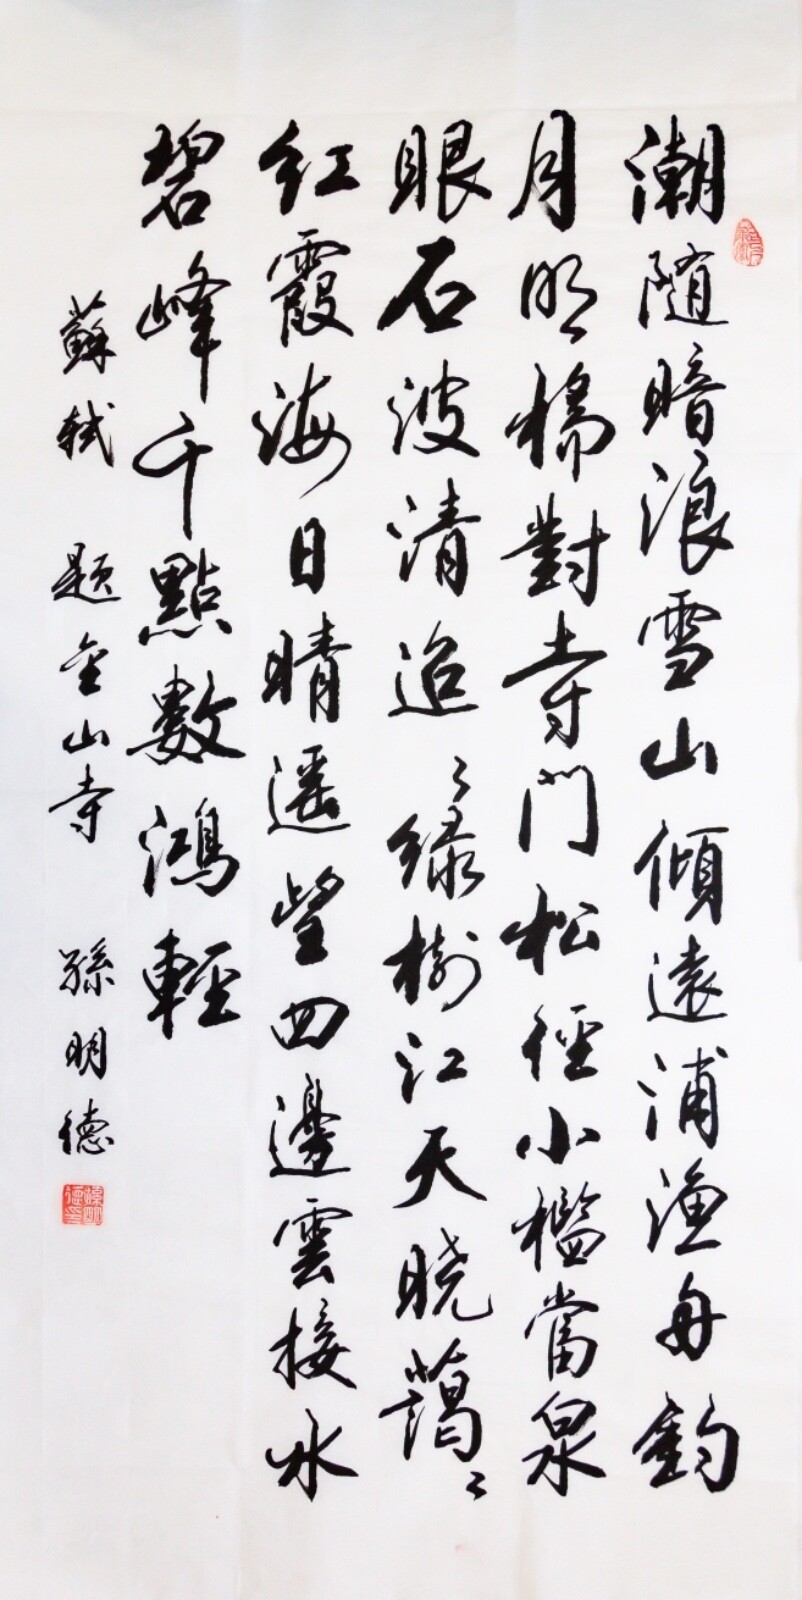 潮随暗浪雪山傾遠浦渔舟釣
月明橋對寺門松徑小檻當泉
眼石波清迢〻绿樹江天晓藹〻
红霞海日晴遥望四邊雲接水
碧峰千點數鴻輕
蘇軾 题金山寺 孫明德